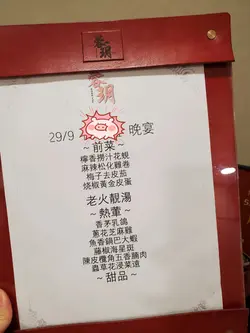 29/9 晚宴
~前菜~
檸香撈汁花蜆
麻辣松化雞卷
梅子去皮茄
燒椒黃金皮蛋
老火靚湯
~熱葷~
香茅乳鴿
蔥花芝麻雞
魚香鍋巴大蝦
藤椒海星斑
陳皮欖角五香腩肉
蟲草花浸菜遠
~甜品~